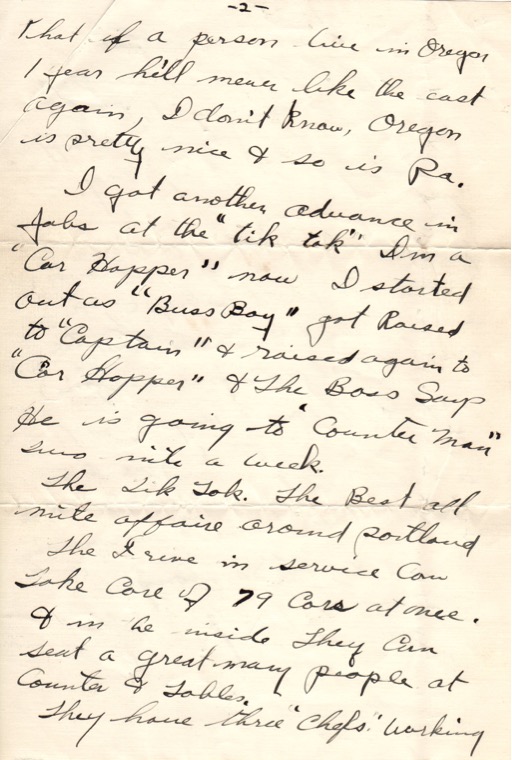 -2-
that if a person live in Oregon
1 year he'll never like the east
again, I don't know, Oregon
is pretty nice & so is Pa.
I got another advance in
Jobs at the "tik tok" I'm a
"Car Hopper" now I started
out as "Buss Boy" got Raised
to "Captain" & raised again to
"Car Hopper" & The Boss Says
He is going to "Counter Man"
nite a week.
The Tik Tok. The Best all
nite affaire around portland
The Drive in service Can
Take Care of 79 Cars at once.
& in he inside They Can
seat a great many people at
Counter & Tables.
They have three "Chefs" working